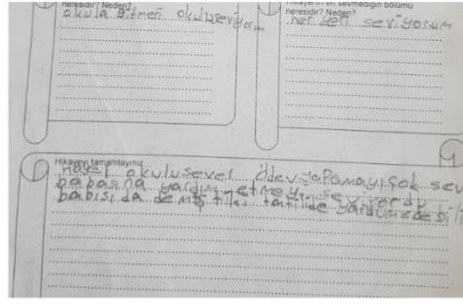 neresidir? Neden?
okula gitmeri okuluseviyorum
Hikayenin en sevmediğin bölümü
neresidir? Neden?
her yeri seviyorum
Hikayeyi tamamlayınız
okulusever ödev yapamayı çok sev
babasına yardım etmeyi seviyordu
babısıda demiş tilki tatilde yardım edebili